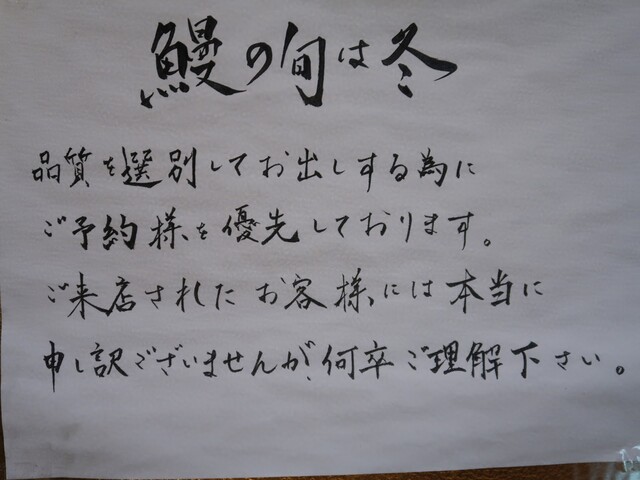 鰻の旬は冬
品質を選別してお出しする為に
ご予約様を優先しております。
ご来店されたお客様には本当に
申し訳ございませんが、何卒ご理解下さい。